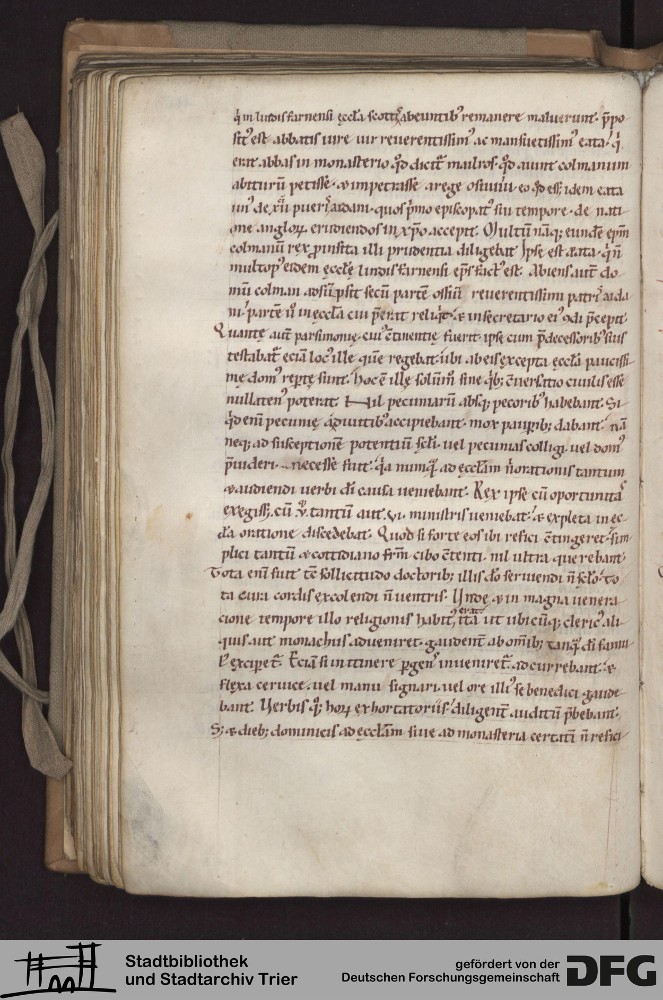 q̄ in lindisfarnensi ęccl̄a scottis abeuntib; remanere maluerunt. p̄po
sit; est abbatis iure uir reuerentissim; ac mansuetissim; eata. q̄
erat abbas in monasterio qd̄ dicit̄ mailros. qd̄ aiunt colmanum
abiturū petisse. & impetrasse a rege osuuiu. eo qd̄ ess& idem eata
un; de .xii. pueris aidani. quos p̄mo episcopat; sui tempore. de nati
one anglor̄ erudiendos in xp̄o accepit. Multū nāq; eundē ep̄m
colmanū rex p̄ insita illi prudentia diligebat. Ipse est eata. q̄ n̄
multo p; eidem ęccl̄ę lindisfarnensi ep̄s fact; est. Abiens aut̄ do
mū colman adsūpsit secū partē ossiū reuerentissimi patris aida
ni. partē ū in ęccl̄a cui p̄erat reliq̄t. & in secretario ei; cōdi p̄cepit.
Quantę aut̄ parsimonię. cui; c̄tinentię fuerit ipse cum p̄decessorib; suis
testabat̄ eciā loc; ille quē regebat. ubi abeis excepta ęccl̄a paucissi
mę dom; reptę sunt. hoc ē illę solūm̄ sine q̄b; c̄uersatio ciuilis esse
nullaten; poterat. Nil pecuniarū absq; pecorib; habebant. Si
q̄d enī pecunię a diuitib; accipiebant. mox paup̄ib; dabant. Nā
neq; ad susceptionē potentiū sc̄li. uel pecunias colligi. uel dom;
p̄uideri necesse fuit. q̄a numq̄ ad ęccl̄am n̄ orationis tantum
& audiendi uerbi dī causa ueniebant. Rex ipse cū oportunitas
exegiss&. cū .v. tantū aut .vi. ministris ueniebat. & expleta in ec
cl̄a oratione discedebat. Quod si forte eos ibi refici c̄tingeret. sim
plici tantū & cottidiano fr̄m cibo c̄tenti. nil ultra querebant.
Tota enī fuit tc̄ sollicitudo doctorib; illis dō seruiendi n̄ sc̄lo. to
ta cura cordis excolendi n̄ uentris. Unde & in magna uenera
cione tempore illo religionis habit; erat. ita ut ubicūq; cleric; ali
quis aut monachus adueniret. gaudent̄ ab om̄ib; tanq̄ dī famu
l; exciperet̄. Eciā si in itinere pergens inueniret̄. adcurrebant. &
flexa ceruice. uel manu signari. uel ore illi; se benedici gaude
bant. Uerbis q; hor̄ exhortatoriis. diligent̄ auditū p̄bebant.
S; & dieb; dominicis ad ęccl̄am siue ad monasteria certatī n̄ refici
Stadtbibliothek
und Stadtarchiv Trier
gefördert von der
Deutschen Forschungsgemeinschaft
DFG